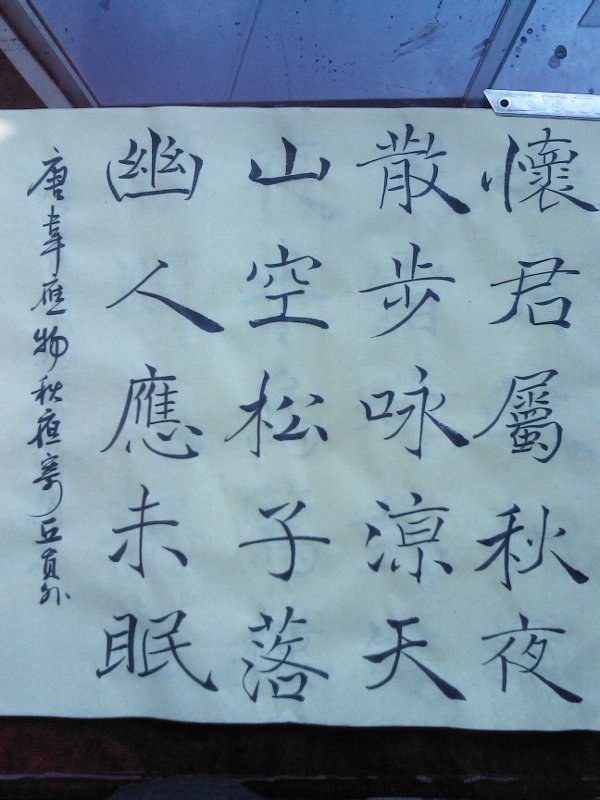 懷君屬秋夜
散步咏涼天
山空松子落
幽人應未眠
唐韋應物秋夜寄丘員外